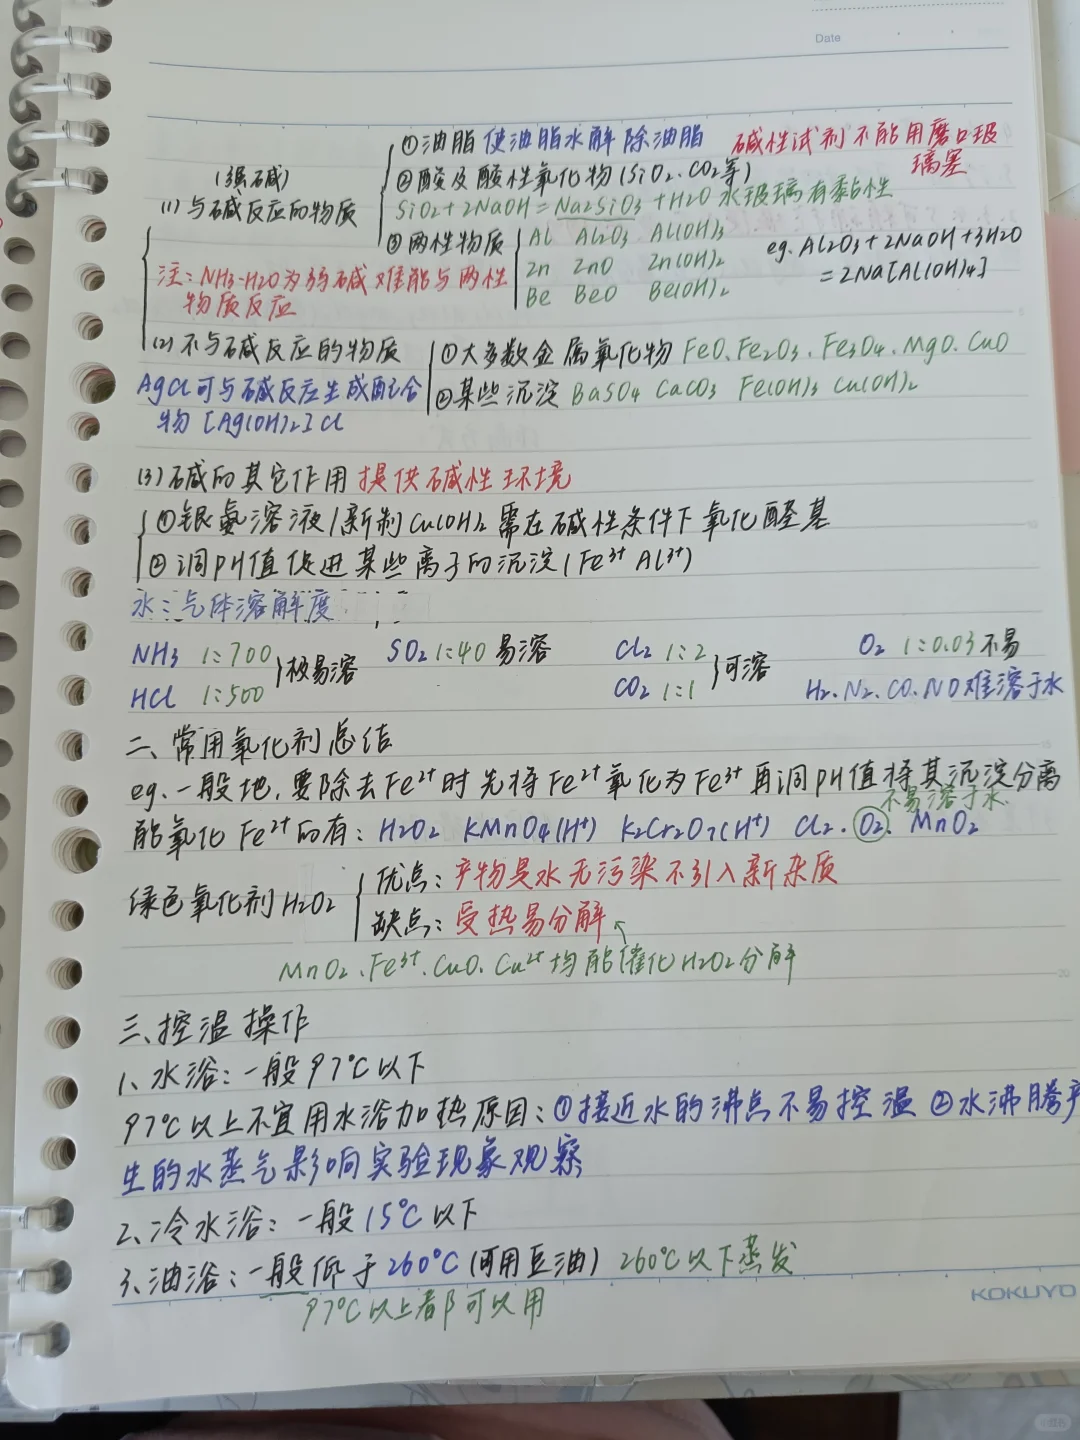 Date
①油脂 使油脂水解 除油脂 碱性试剂不能用磨口玻
璃塞
(强碱)
②酸及酸性氧化物(SiO₂.CO₂等)
(1)与碱反应的物质
SiO₂+2NaOH=Na₂SiO₃+H₂O 水玻璃有黏性
③两性物质
Al Al₂O₃ Al(OH)₃
Zn ZnO Zn(OH)₂
Be BeO Be(OH)₂
eg. Al₂O₃+2NaOH+3H₂O
=2Na[Al(OH)₄]
注:NH₃·H₂O为弱碱难能与两性
物质反应
(2)不与碱反应的物质
①大多数金属氧化物 FeO.Fe₂O₃.Fe₃O₄.MgO.CuO
②某些沉淀 BaSO₄ CaCO₃ Fe(OH)₃ Cu(OH)₂
AgCl可与碱反应生成配合
物[Ag(OH)₂]Cl
(3)碱的其它作用 提供碱性环境
①银氨溶液/新制Cu(OH)₂需在碱性条件下氧化醛基
②调pH值促进某些离子的沉淀(Fe³⁺ Al³⁺)
水:气体溶解度
NH₃ 1:700 SO₂ 1:40 易溶 Cl₂ 1:2 O₂ 1:0.03不易
极易溶 可溶
HCl 1:500 CO₂ 1:1 H₂.N₂.CO.NO难溶于水
二、常用氧化剂总结
eg.一般地,要除去Fe²⁺时先将Fe²⁺氧化为Fe³⁺再调pH值将其沉淀分离
不易溶于水.
能氧化Fe²⁺的有:H₂O₂ KMnO₄(H⁺) K₂Cr₂O₇(H⁺) Cl₂.O₂. MnO₂
绿色氧化剂H₂O₂
优点:产物是水无污染不引入新杂质
缺点:受热易分解
MnO₂.Fe³⁺.CuO.Cu²⁺均能催化H₂O₂分解
三、控温操作
1、水浴:一般97℃以下
97℃以上不宜用水浴加热原因:①接近水的沸点不易控温 ②水沸腾产
生的水蒸气影响实验现象观察
2、冷水浴:一般15℃以下
3、油浴:一般低于260℃(可用豆油) 260℃以下蒸发
97℃以上都可以用
KOKUYO